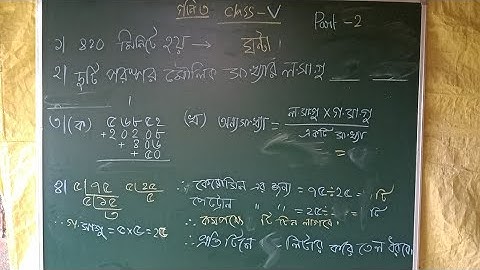 গণিত class-V Part-2
১) ৪২০ মিনিটে হয় → ঘন্টা।
২) দুটি পরস্পর মৌলিক সংখ্যার ল.সা.গু
৩) (ক) ৫৬৮৫২
+২০২০৮
+৪০৬
+৫০
(খ) অন্যসংখ্যা = ল.সা.গু × গ.সা.গু
একটি সংখ্যা
=
৪) ৫ ৭৫ ৫ ২৫
৫ ১৫ ৫
৩
∴ গ.সা.গু = ৫×৫ = ২৫
∴ কেরোসিন এর জন্য = ৭৫÷২৫ = টি
পেট্রোল " " = ২৫÷ = টি
∴ কমপক্ষে টি টিন লাগবে।
∴ প্রতি টিনে = লিটার করে তেল ধরবে।